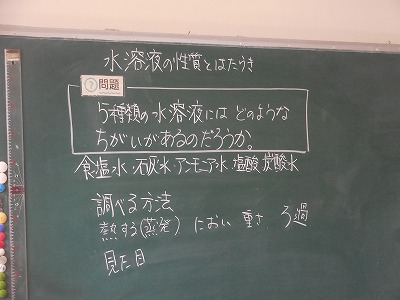 水溶液の性質とはたらき
?問題
5種類の水溶液には どのような
ちがいがあるのだろうか。
食塩水 石灰水 アンモニア水 塩酸 炭酸水
調べる方法
熱する(蒸発) におい 重さ ろ過
見た目